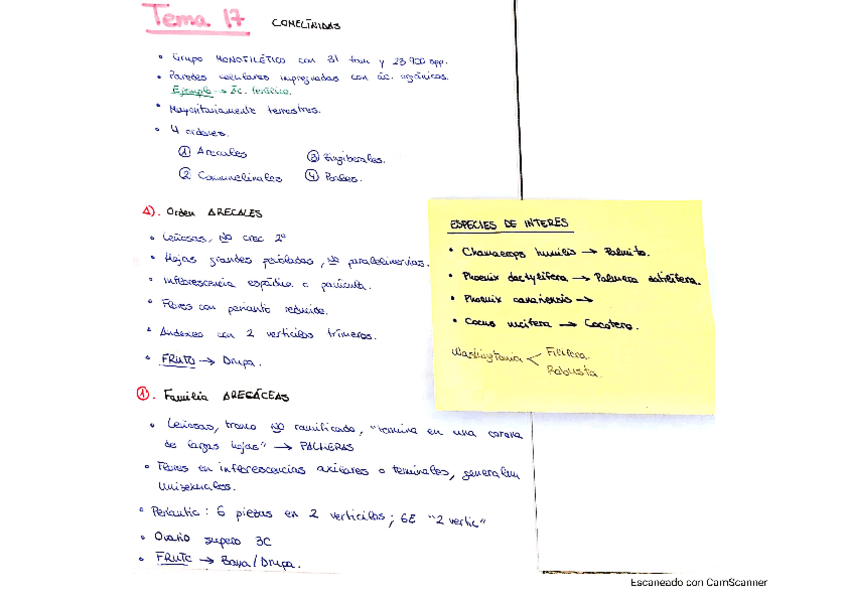 Tema 17 COMELÍNIDAS
• Grupo MONOFILÉTICO con 31 fam y 23 900 spp.
• Paredes celulares impregnadas con ác. orgánicos.
Ejemplo → Ác. ferúlico.
• Mayoritariamente terrestres.
• 4 ordenes.
① Arecales ③ Zingiberales.
② Commelinales ④ Poales.
A). Orden ARECALES
• Leñosas, NO crec 2º
• Hojas grandes pecioladas, NO paralelinervias.
• Inflorescencia espádice o panícula.
• Flores con perianto reducido.
• Androceo con 2 verticilos trímeros.
• FRUTO → Drupa.
①. Familia ARECÁCEAS
• Leñosas, tronco NO ramificado, "termina en una corona
de largas hojas" → PALMERAS
• Flores en inflorescencias axilares o terminales, generalm
unisexuales.
• Perianto: 6 piezas en 2 verticilos; 6E "2 vertic"
• Ovario supero 3C
• FRUTO → Baya/Drupa.
ESPECIES DE INTERÉS
• Chamaerops humilis → Palmito.
• Phoenix dactylifera → Palmera datilifera.
• Phoenix canariensis →
• Cocus nucifera → Cocotero.
Washingtonia < Filifera.
Robusta
Escaneado con CamScanner